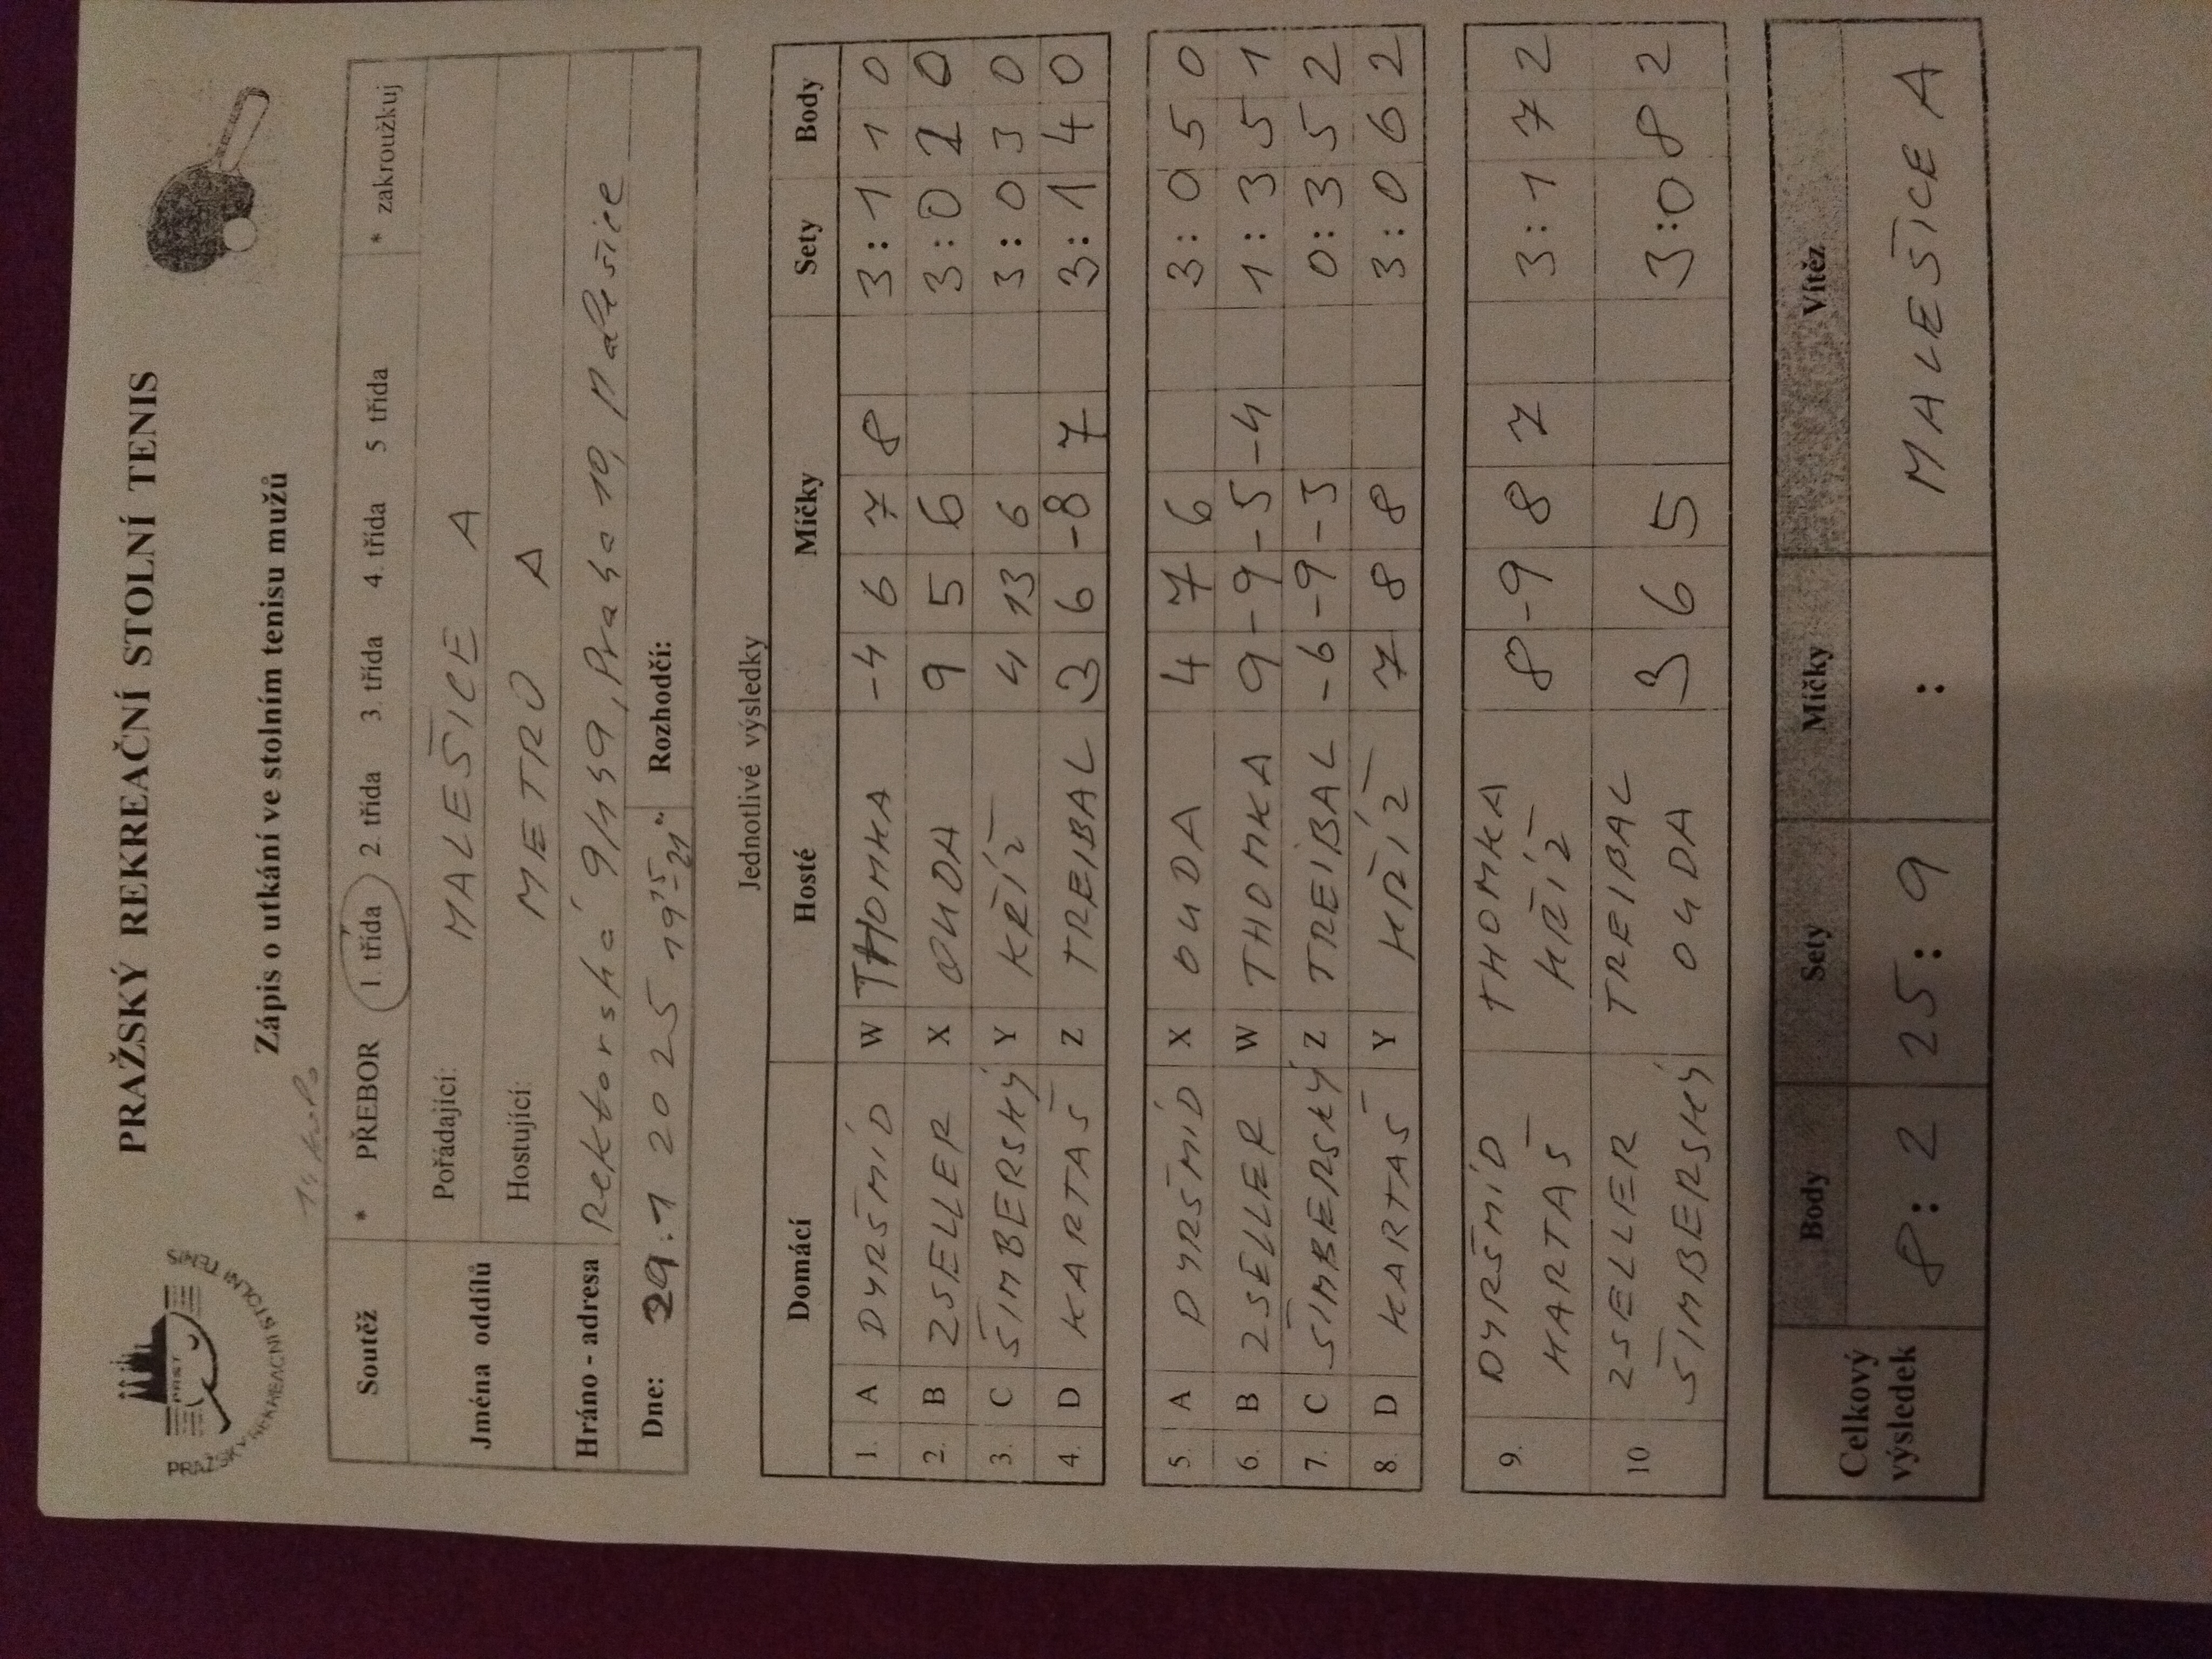 PRAŽSKÝ REKREAČNÍ STOLNÍ TENIS
PRAŽSKÝ REKREAČNÍ STOLNÍ TENIS
Zápis o utkání ve stolním tenisu mužů
Soutěž * PŘEBOR 1. třída 2. třída 3. třída 4. třída 5 třída * zakroužkuj
Jména oddílů Pořádající: MALEŠICE A
Hostující: METRO A
Hráno - adresa Rektorská 9/459, Praha 10, Malešice
Dne: 29.1 2025 1915-21 Rozhodčí:
Jednotlivé výsledky
Domácí Hosté Míčky Sety Body
1. A DYRŠMÍD W THOMKA -4 6 7 8 3:1 1 0
2. B ZSELLER X OUDA 9 5 6 3:0 2 0
3. C ŠIMBERSKÝ Y KŘÍŽ 4 13 6 3:0 3 0
4. D KARTAŠ Z TREIBAL 3 6 -8 7 3:1 4 0
5. A DYRŠMÍD X OUDA 4 7 6 3:0 5 0
6. B ZSELLER W THOMKA 9 -9 -5 -4 1:3 5 1
7. C ŠIMBERSKÝ Z TREIBAL -6 -9 -3 0:3 5 2
8. D KARTAŠ Y KŘÍŽ 7 8 8 3:0 6 2
9. DYRŠMÍD THOMKA 8 -9 8 7 3:1 7 2
KARTAŠ KŘÍŽ
10 ZSELLER TREIBAL 3 6 5 3:0 8 2
ŠIMBERSKÝ OUDA
Celkový výsledek Body Sety Míčky Vítěz
8:2 25:9 : MALEŠICE A